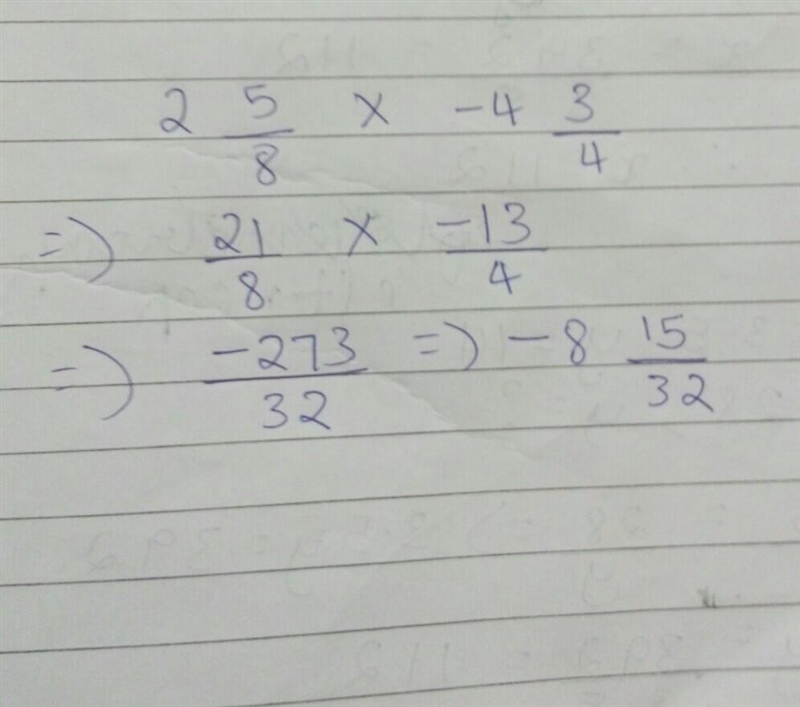 2 5/8 × -4 3/4
=) 21/8 × -13/4
=) -273/32 =) -8 15/32